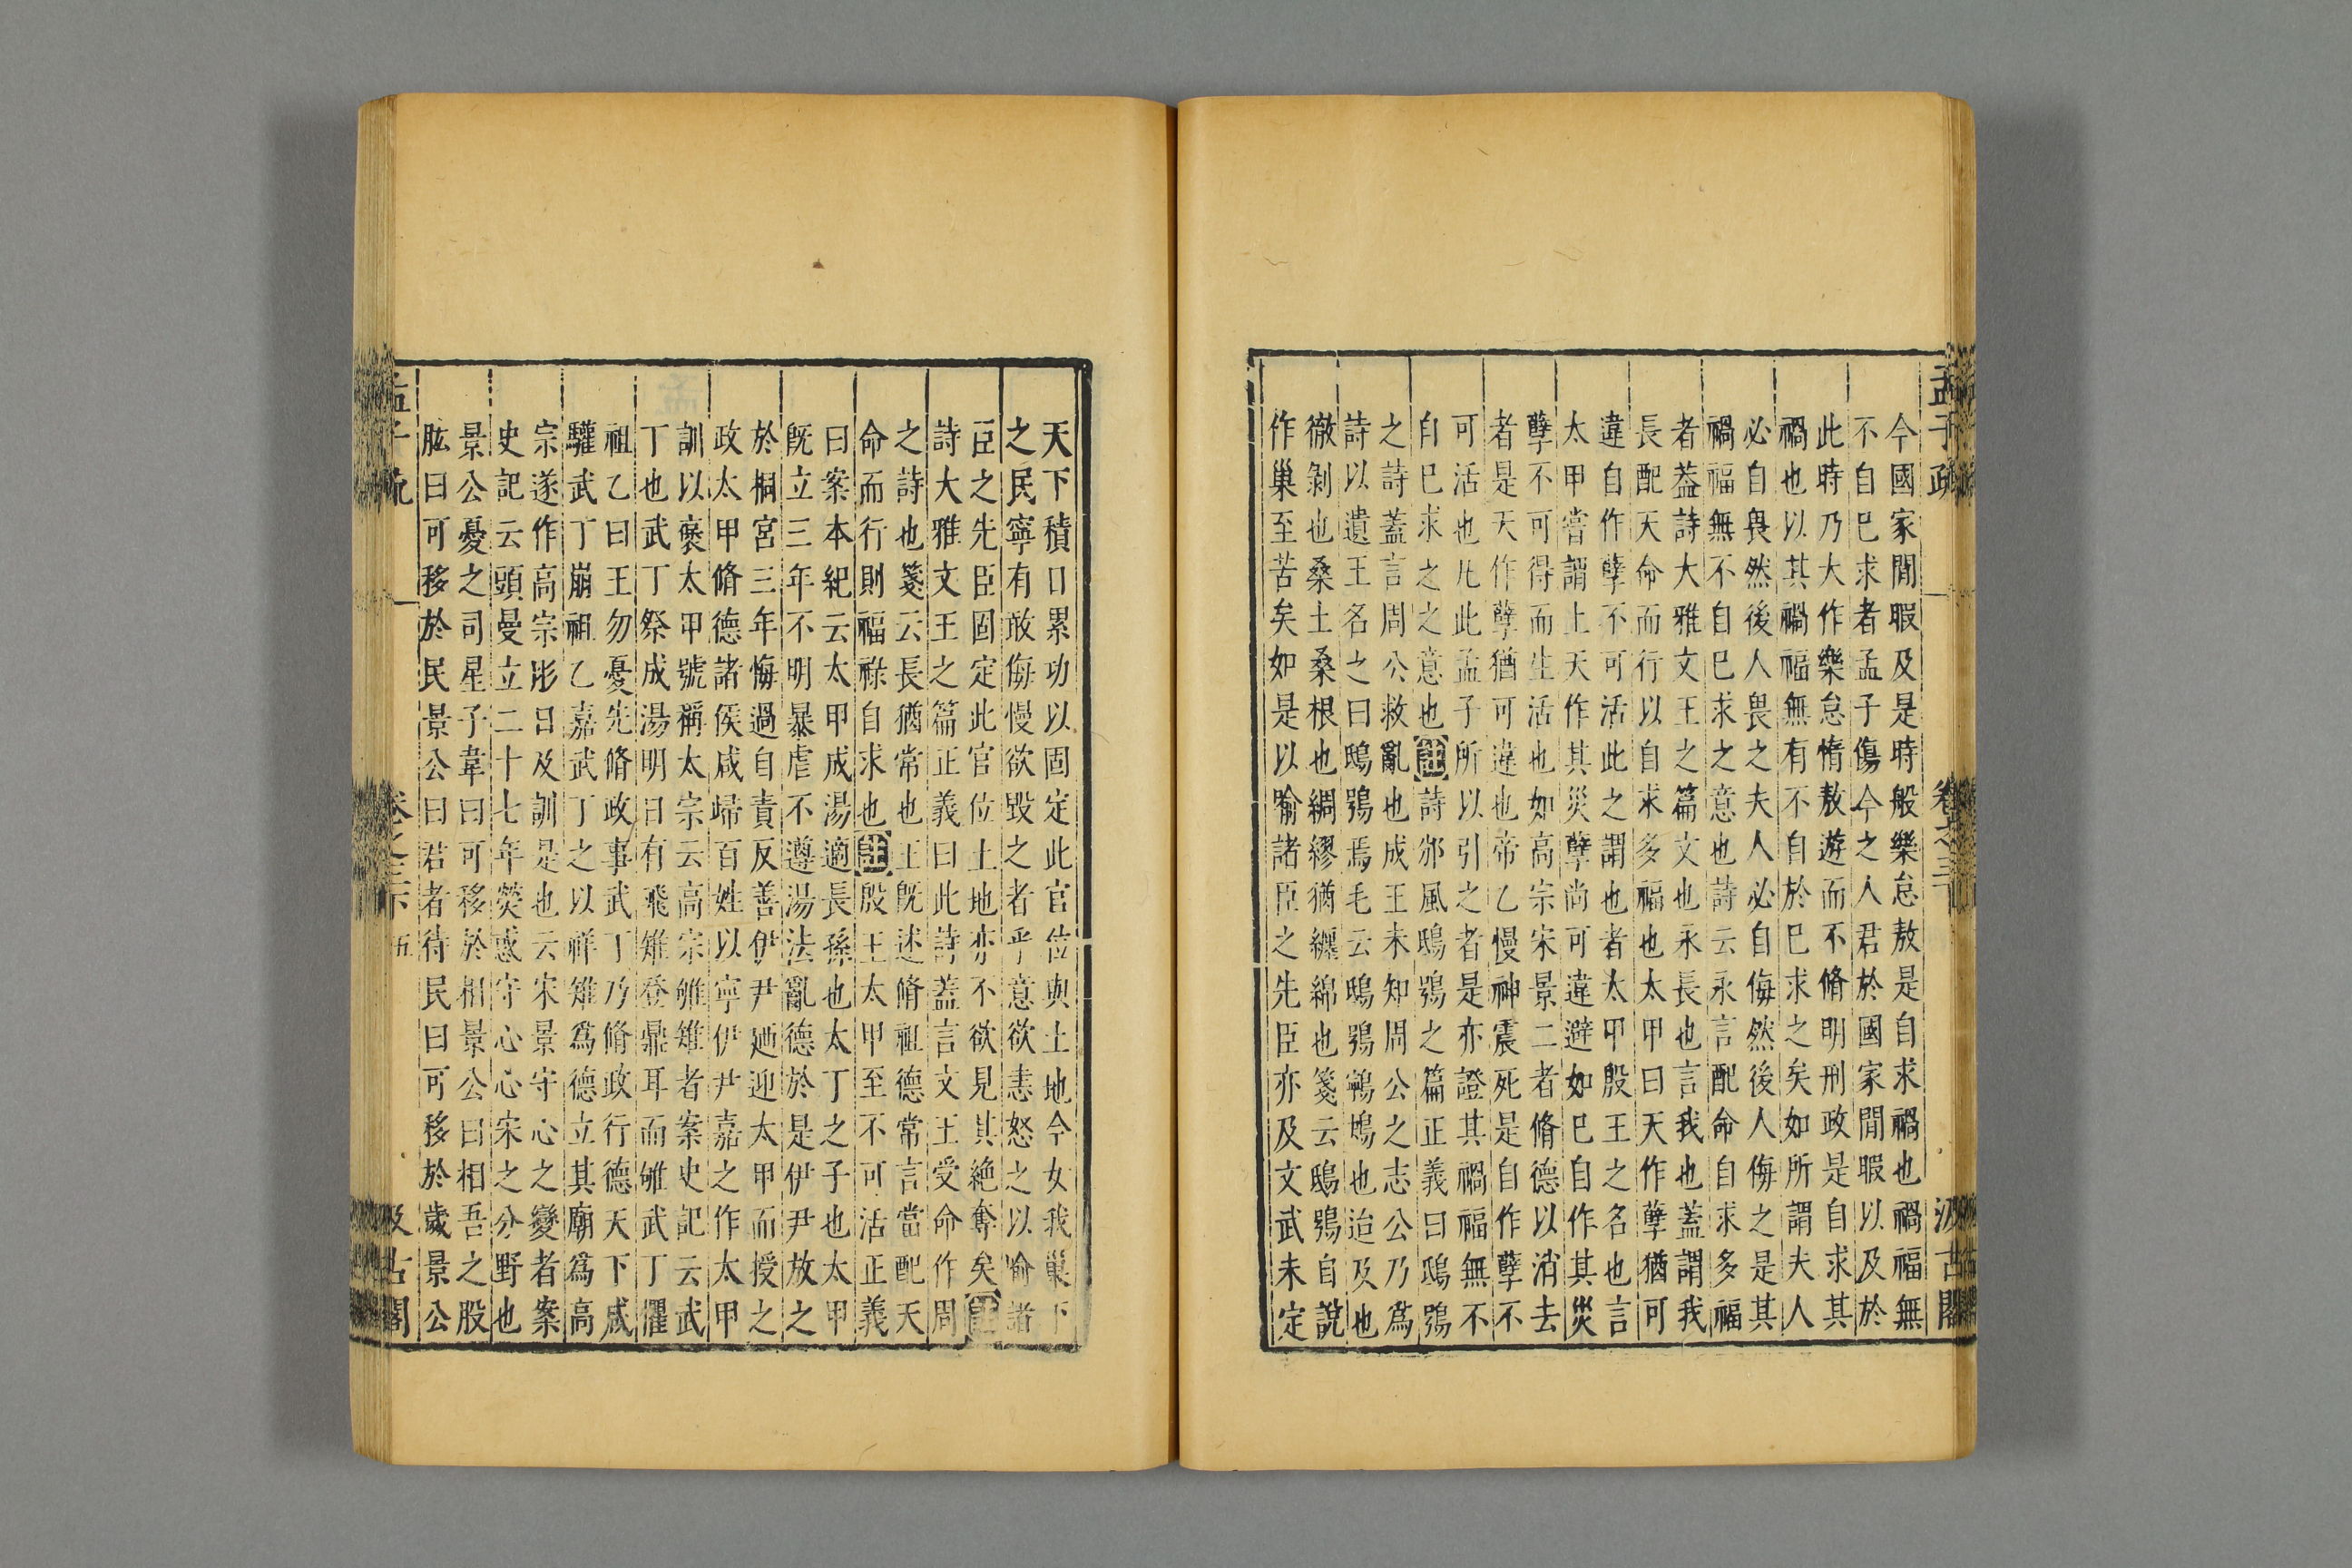 孟子疏 卷之三下 汲古閣
今國家閒暇及是時般樂怠敖是自求禍也禍福無
不自巳求者孟子傷今之人君於國家閒暇以及於
此時乃大作樂怠惰敖遊而不脩明刑政是自求其
禍也以其禍福無有不自於巳求之矣如所謂夫人
必自畏然後人畏之夫人必自侮然後人侮之是其
禍福無不自巳求之意也詩云永言配命自求多福
者葢詩大雅文王之篇文也永長也言我也蓋謂我
長配天命而行以自求多福也太甲曰天作孽猶可
違自作孽不可活此之謂也者太甲殷王之名也言
太甲嘗謂上天作其災孽尚可違避如巳自作其災
孽不可得而生活也如高宗宋景二者脩德以消去
者是天作孽猶可違也帝乙慢神震死是自作孽不
可活也凡此孟子所以引之者是亦證其禍福無不
自巳求之之意也註詩邠風鴟鴞之篇正義曰鴟鴞
之詩蓋言周公救亂也成王未知周公之志公乃爲
詩以遺王名之曰鴟鴞焉毛云鴟鴞鸋鴂也迨及也
徹剝也桑土桑根也綢繆猶纏綿也箋云鴟鴞自說
作巢至苦矣如是以喻諸臣之先臣亦及文武未定
天下積日累功以固定此官位與土地今女我巢下
之民寧有敢侮慢欲毀之者乎意欲恚怒之以喻諸
臣之先臣固定此官位土地亦不欲見其絶奪矣註
詩大雅文王之篇正義曰此詩蓋言文王受命作周
之詩也箋云長猶常也王旣述脩祖德常言當配天
命而行則福祿自求也註殷王太甲至不可活正義
曰案本紀云太甲成湯適長孫也太丁之子也太甲
旣立三年不明暴虐不遵湯法亂德於是伊尹放之
於桐宮三年悔過自責反善伊尹廼迎太甲而授之
政太甲脩德諸侯咸歸百姓以寧伊尹嘉之作太甲
訓以襃太甲號稱太宗云高宗雊雉者案史記云武
丁也武丁祭成湯明日有飛雉登鼎耳而雊武丁懼
祖乙曰王勿憂先脩政事武丁乃脩政行德天下咸
驩武丁崩祖乙嘉武丁之以祥雉爲德立其廟爲高
宗遂作高宗肜日及訓是也云宋景守心之變者案
史記云頭曼立二十七年熒惑守心心宋之分野也
景公憂之司星子韋曰可移於相景公曰相吾之股
肱曰可移於民景公曰君者待民曰可移於歲景公
孟子疏 卷之三下 五 汲古閣